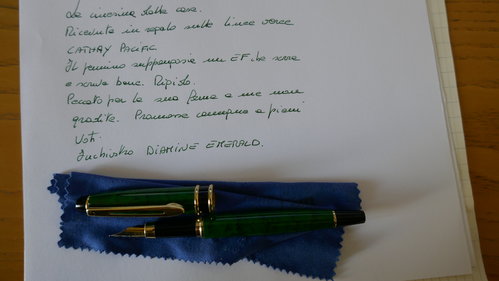 La incisina dalla casa.
Ricevuta in regalo sulle linee aeree
CATHAY PACIFIC
Il pennino suppongosia un EF che scorre
e scrive bene. Rigido.
Peccato per la sua forma a me non
gradita. Promossa comunque a pieni
Voti.
Inchiostro DIAMINE EMERALD.